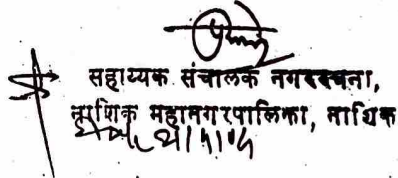 सहाय्यक संचालक नगररचना,
नाशिक महानगरपालिका, नाशिक